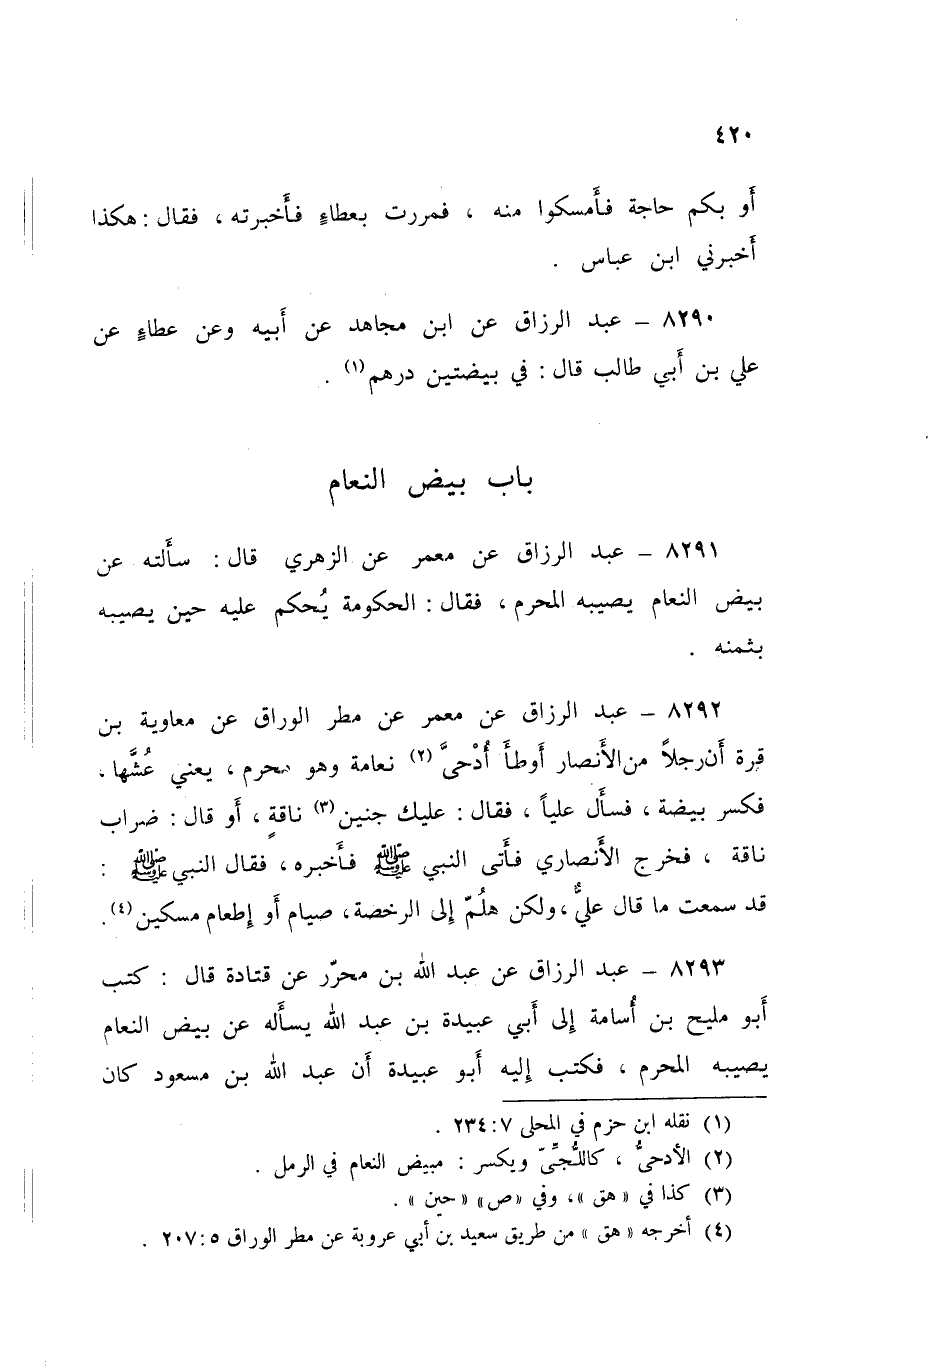 ٤٢٠
أَو بكم حاجة فأَمسكوا منه ، فمررت بعطاءٍ فأَخبرته ، فقال : هكذا
أَخبرني ابن عباس .
٨٢٩٠ – عبد الرزاق عن ابن مجاهد عن أَبيه وعن عطاءٍ عن
علي بن أَبي طالب قال : في بيضتين درهم(١) .
باب بيض النعام
٨٢٩١ – عبد الرزاق عن معمر عن الزهري قال : سأَلته عن
بيض النعام يصيبه المحرم ، فقال : الحكومة يُحكم عليه حين يصيبه
بثمنه .
٨٢٩٢ – عبد الرزاق عن معمر عن مطر الوراق عن معاوية بن
قرة أَن رجلاً من الأَنصار أَوطأَ أُدْحيَّ (٢) نعامة وهو محرم ، يعني عُشَّها ،
فكسر بيضة ، فسأَل علياً ، فقال : عليك جنين(٣) ناقةٍ ، أَو قال : ضراب
ناقة ، فخرج الأَنصاري فأَتى النبي ﷺ فأَخبره ، فقال النبي ﷺ :
قد سمعت ما قال عليٌّ ، ولكن هلُمّ إلى الرخصة ، صيام أَو إطعام مسكين(٤) .
٨٢٩٣ – عبد الرزاق عن عبد الله بن محرّر عن قتادة قال : كتب
أَبو مليح بن أُسامة إلى أَبي عبيدة بن عبد الله يسأَله عن بيض النعام
يصيبه المحرم ، فكتب إليه أَبو عبيدة أَن عبد الله بن مسعود كان
(١) نقله ابن حزم في المحلى ٧ : ٢٣٤ .
(٢) الأدحيُّ ، كاللُّجِّيّ ويكسر : مبيض النعام في الرمل .
(٣) كذا في « هق » ، وفي « ص » « حين » .
(٤) أخرجه « هق » من طريق سعيد بن أبي عروبة عن مطر الوراق ٥ : ٢٠٧ .